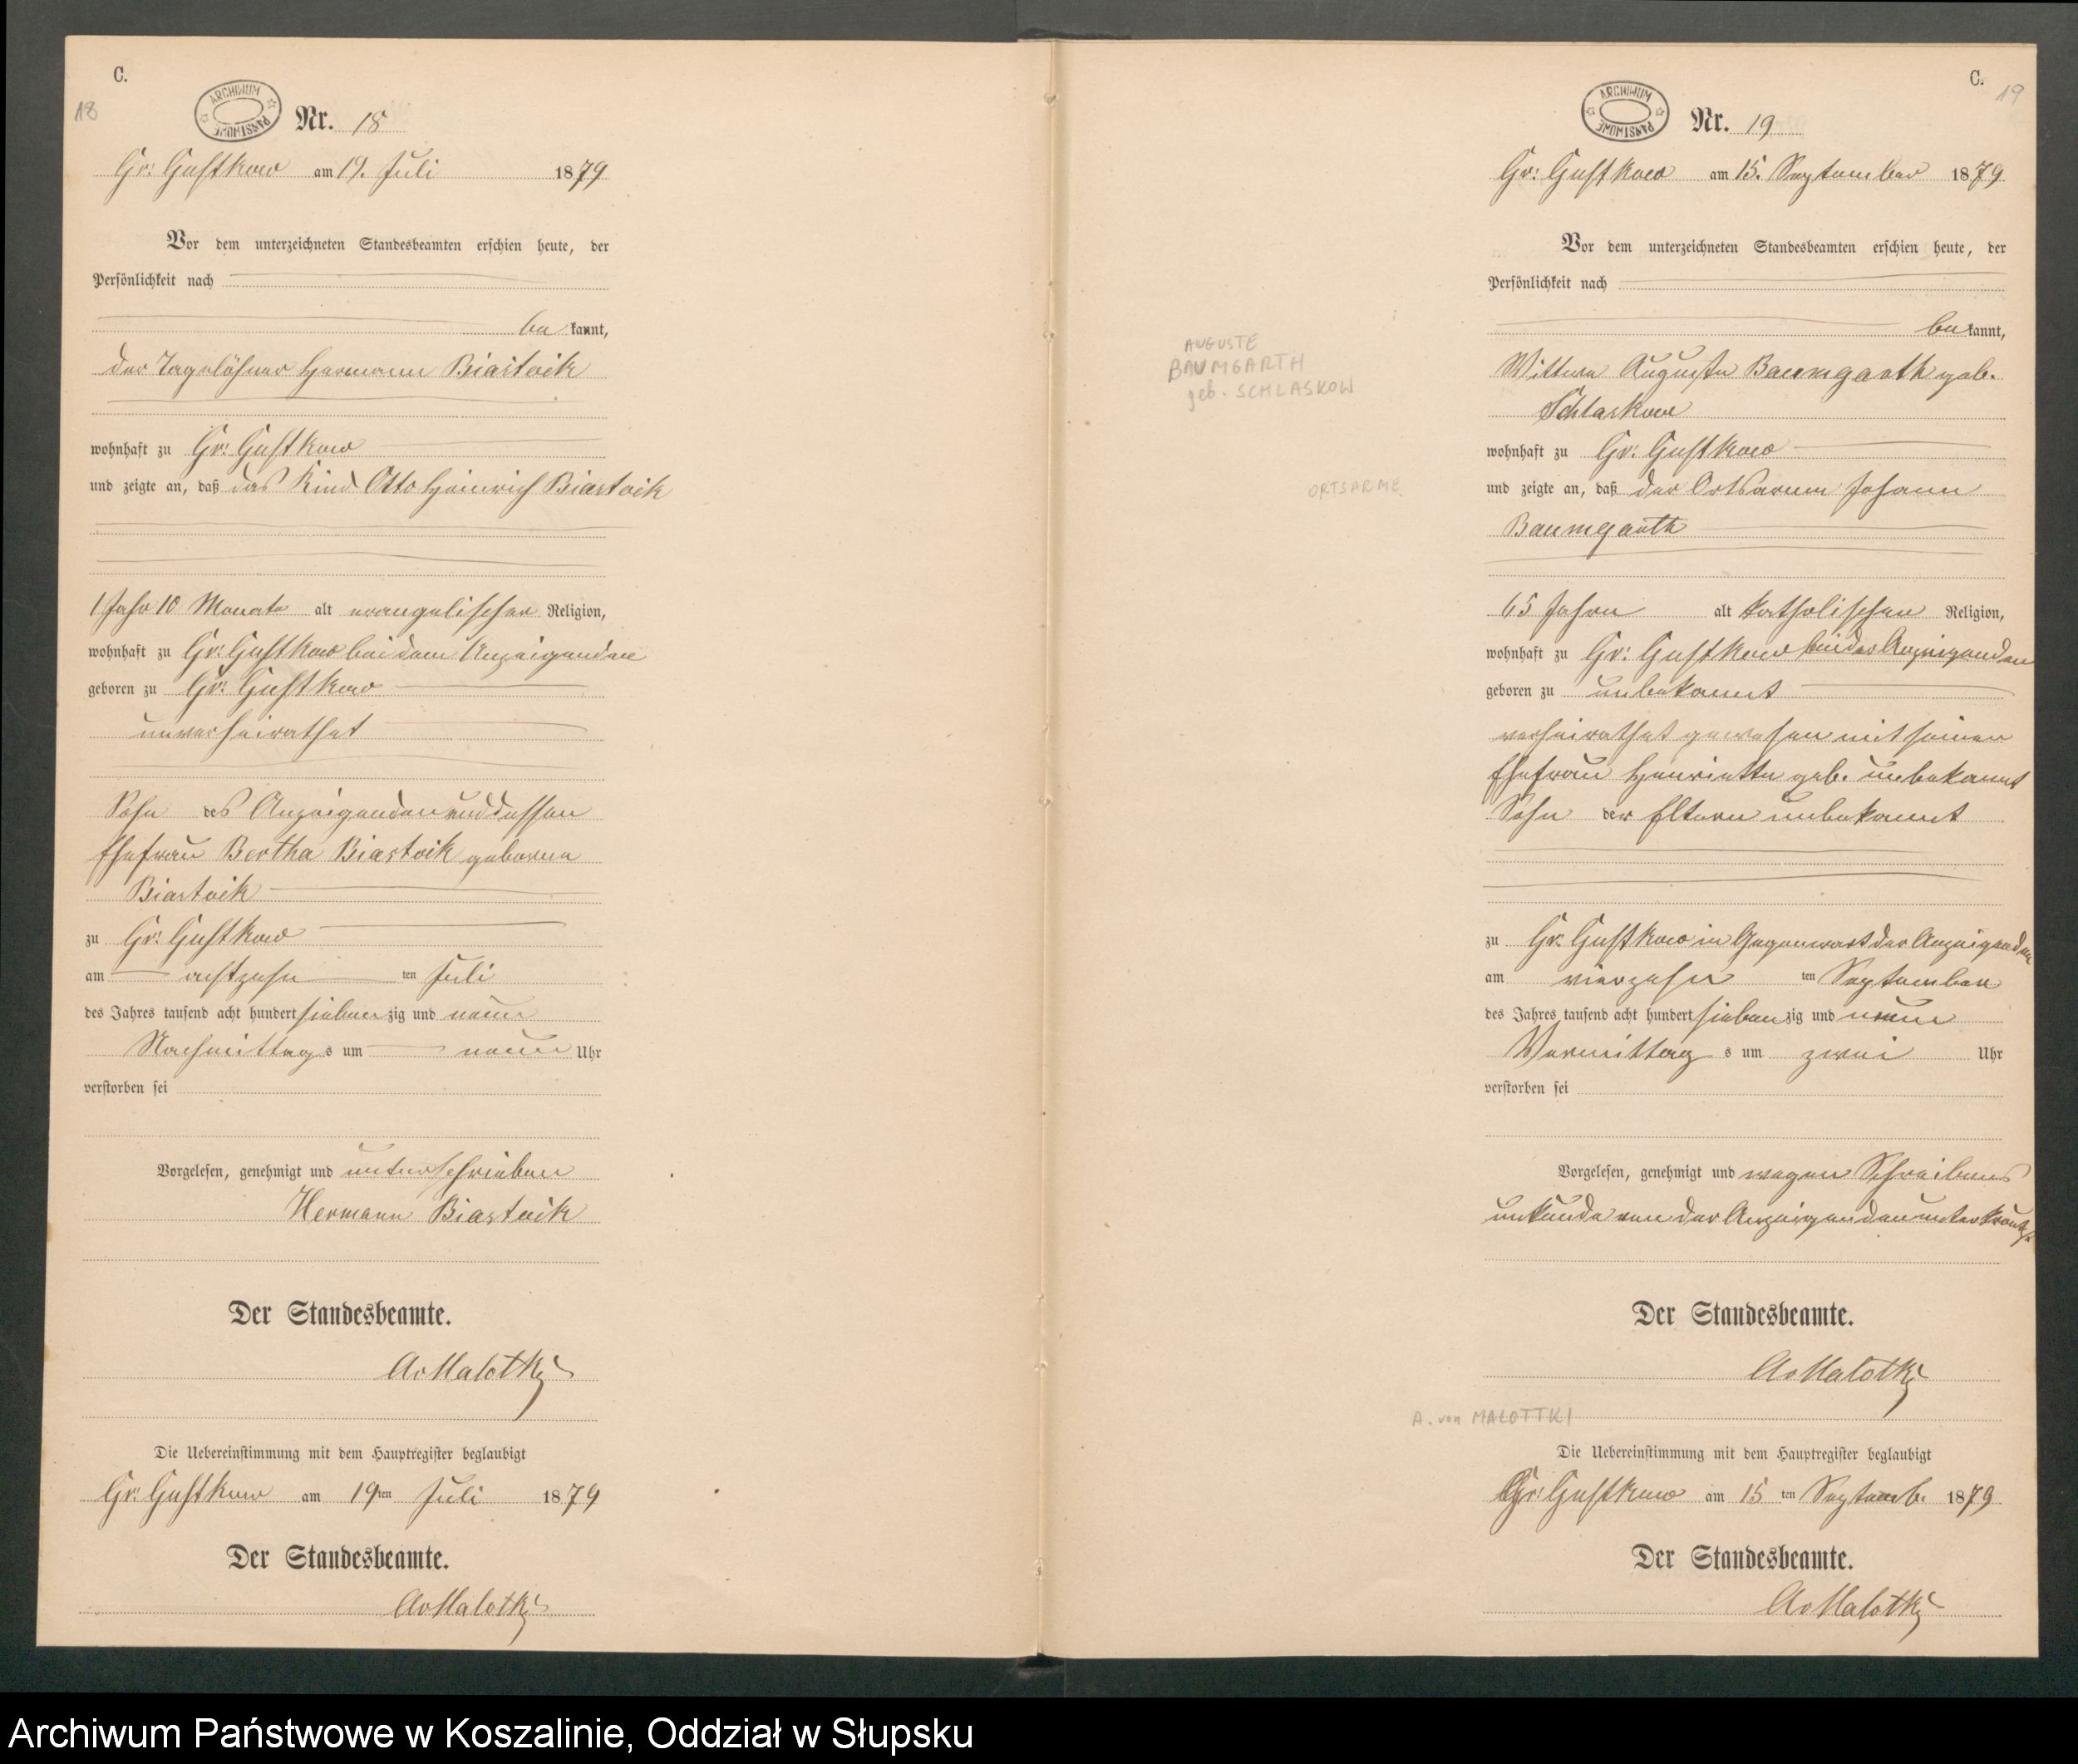 C.
18
ARCHIWUM PAŃSTWOWE
Nr. 18
Gr: Gustkow am 19. Juli 1879
Vor dem unterzeichneten Standesbeamten erschien heute, der
Persönlichkeit nach
bekannt,
der Tagelöhner Hermann Biastoik
wohnhaft zu Gr: Gustkow
und zeigte an, daß das Kind Otto Heinrich Biastoik
1 Jahr 10 Monate alt evangelischer Religion,
wohnhaft zu Gr: Gustkow bei dem Anzeigenden
geboren zu Gr: Gustkow
unverheirathet
Sohn des Anzeigenden und dessen
Ehefrau Bertha Biastoik geborene
Biastoik
zu Gr: Gustkow
am achtzehn ten Juli
des Jahres tausend acht hundert siebenzig und neun
Nachmittags um neun Uhr
verstorben sei
Vorgelesen, genehmigt und unterschrieben
Hermann Biastoik
Der Standesbeamte.
AvMalotki
Die Uebereinstimmung mit dem Hauptregister beglaubigt
Gr: Gustkow am 19ten Juli 1879
Der Standesbeamte.
AvMalotki
AUGUSTE
BAUMGARTH
geb. SCHLASKOW
ORTSARME
A. von MALOTTKI
C.
19
ARCHIWUM PAŃSTWOWE
Nr. 19
Gr: Gustkow am 15. September 1879
Vor dem unterzeichneten Standesbeamten erschien heute, der
Persönlichkeit nach
bekannt,
Wittwe Auguste Baumgarth geb.
Schlaskow
wohnhaft zu Gr: Gustkow
und zeigte an, daß der Ortsarme Johann
Baumgarth
65 Jahre alt katholischen Religion,
wohnhaft zu Gr: Gustkow bei der Anzeigenden
geboren zu unbekannt
verheirathet gewesen mit seiner
Ehefrau Henriette geb. unbekannt
Sohn der Eltern unbekannt
zu Gr: Gustkow in Gegenwart der Anzeigenden
am vierzehn ten September
des Jahres tausend acht hundert siebenzig und neun
Vormittags um zwei Uhr
verstorben sei
Vorgelesen, genehmigt und wegen Schreibens
unkunde von der Anzeigenden unterkreuzt
Der Standesbeamte.
AvMalotki
Die Uebereinstimmung mit dem Hauptregister beglaubigt
Gr: Gustkow am 15 ten Septemb. 1879
Der Standesbeamte.
AvMalotki
Archiwum Państwowe w Koszalinie, Oddział w Słupsku